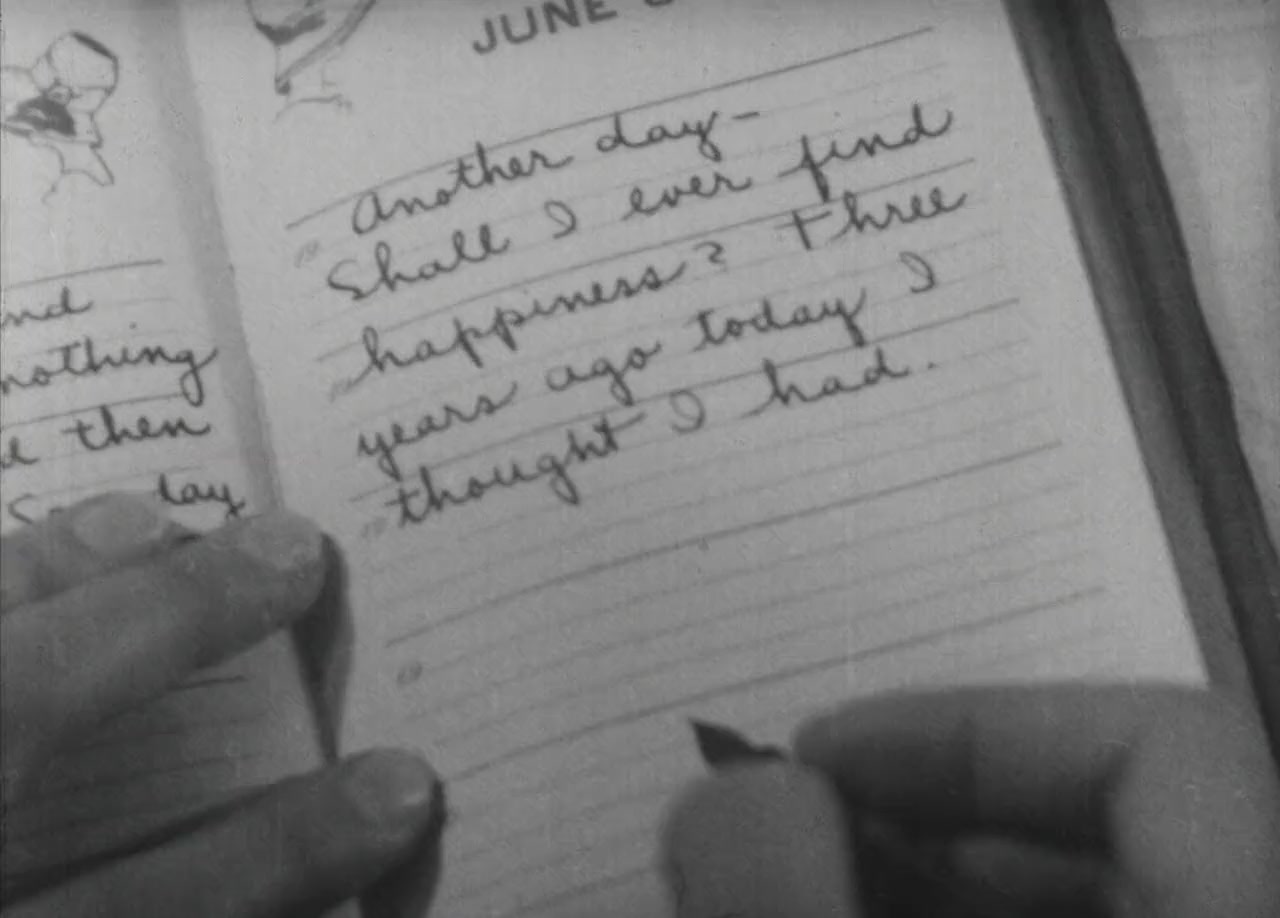 nd
nothing
then
lay
JUNE
Another day-
Shall I ever find
happiness? Three
years ago today I
thought I had.